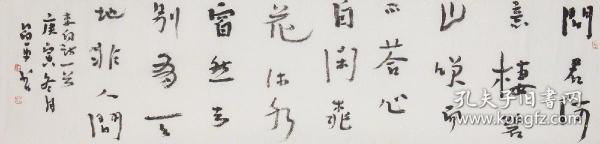 問君何
意棲碧
山笑而
不答心
自閑桃
花流水
窅然去
別有天
地非人間
李白詩一首
庚寅冬月
孔夫子旧書网
book.kongfz.com